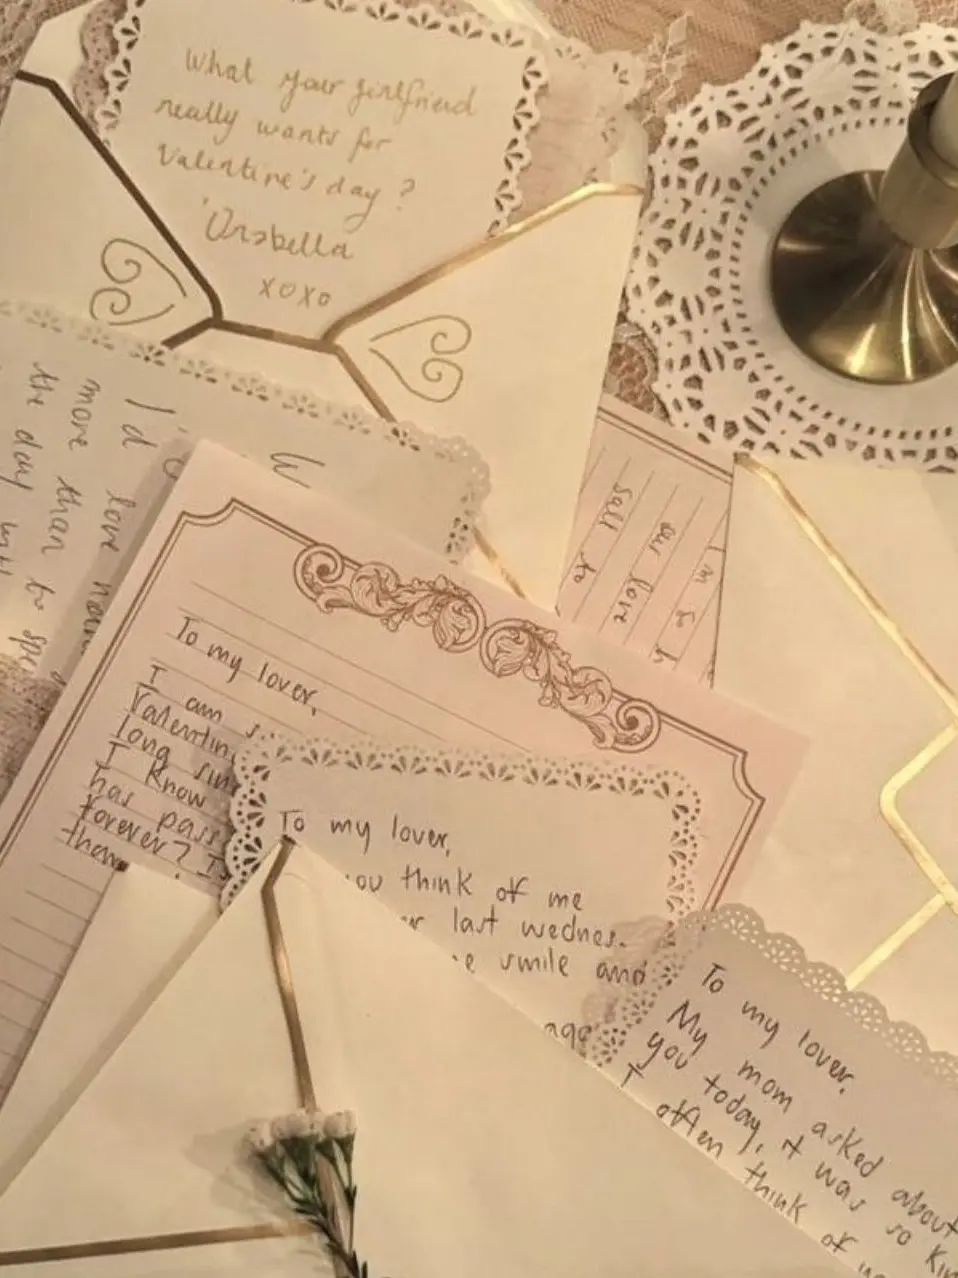 What your girlfriend
really wants for
Valentine's day ?
Orabella
xoxo
I'd love
more than to
the day with
sall to
our love
I'm so
To my lover,
I am s
Valentin
long sin
I know
has pass
forever? I
than
To my lover,
you think of me
er last wednes.
e smile and
ago
To my lover.
My mom asked about
you today, it was so kin
I often think of